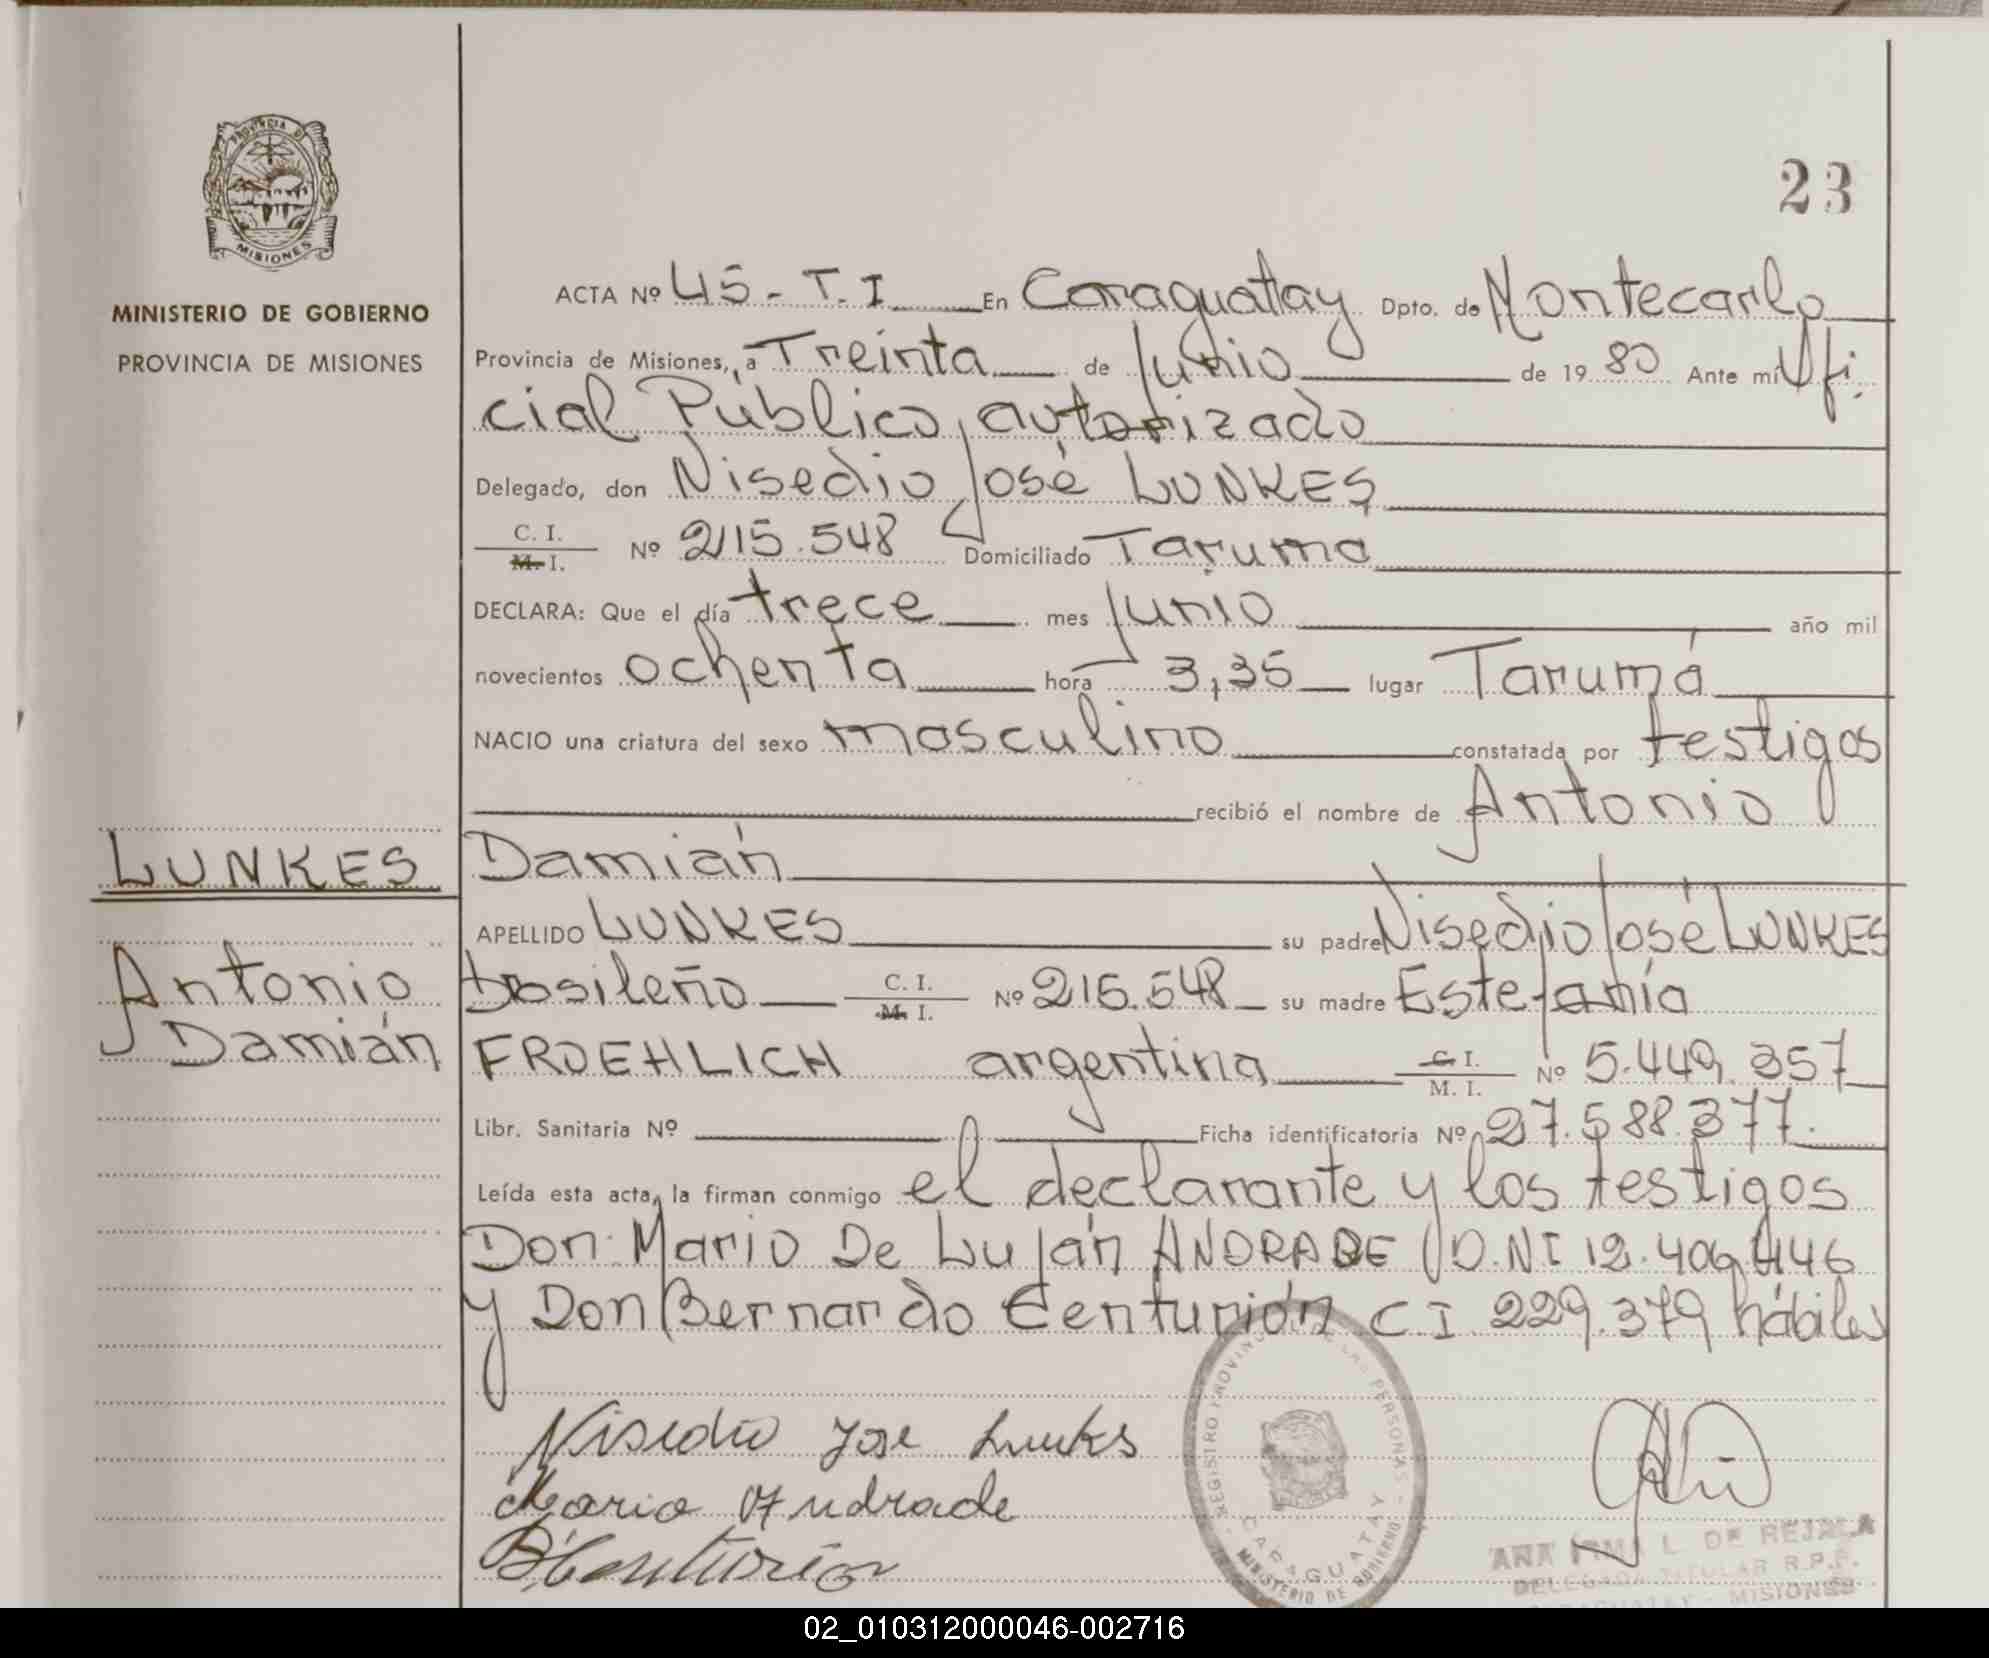 23
PROVINCIA DE
MISIONES
MINISTERIO DE GOBIERNO
PROVINCIA DE MISIONES
ACTA Nº 45 - T. I En Caraguatay Dpto. de Montecarlo
Provincia de Misiones, a Treinta de Junio de 1980 Ante mí Ofi
cial Público, autorizado
Delegado, don Nisedio José LUNKES
C. I.
M. I. Nº 215.548 Domiciliado Taruma
DECLARA: Que el día trece mes Junio año mil
novecientos ochenta hora 3,35 lugar Tarumá
NACIO una criatura del sexo masculino constatada por testigos
recibió el nombre de Antonio
LUNKES Damián
APELLIDO LUNKES su padre Nisedio José LUNKES
Antonio brasileño C. I.
M. I. Nº 215.548 su madre Estefanía
Damián FROEHLICH argentina C. I.
M. I. Nº 5.449.357
Libr. Sanitaria Nº Ficha identificatoria Nº 27.588.377.
Leída esta acta, la firman conmigo el declarante y los testigos
Don: Mario De Luján ANDRADE D.NI 12.406.446
y Don Bernardo Centurión C I 229.379 hábiles
Nisedio Jose Lunkes
Mario Andrade
B Centurión
REGISTRO PROVINCIAL DE LAS PERSONAS
CARAGUATAY
MINISTERIO DE GOBIERNO
ANA IRMA L. DE REJALA
DELEGADA TITULAR R.P.P.
CARAGUATAY - MISIONES
02_010312000046-002716